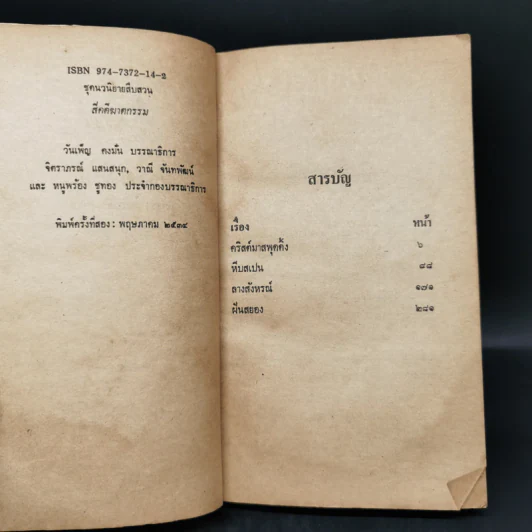 ISBN 974-7372-14-2
ชุดนวนิยายสืบสวน
สี่คดีฆาตกรรม
วันเพ็ญ คงมั่น บรรณาธิการ
จิตราภรณ์ แสนสนุก, วาณี จันทพัฒน์
และ หนูพร้อง ชูทอง ประจำกองบรรณาธิการ
พิมพ์ครั้งที่สอง : พฤษภาคม ๒๕๓๔
สารบัญ
เรื่อง หน้า
คริสต์มาสพุดดิ้ง ๖
หีบสเปน ๙๘
ลางสังหรณ์ ๑๗๑
ฝันสยอง ๒๘๑